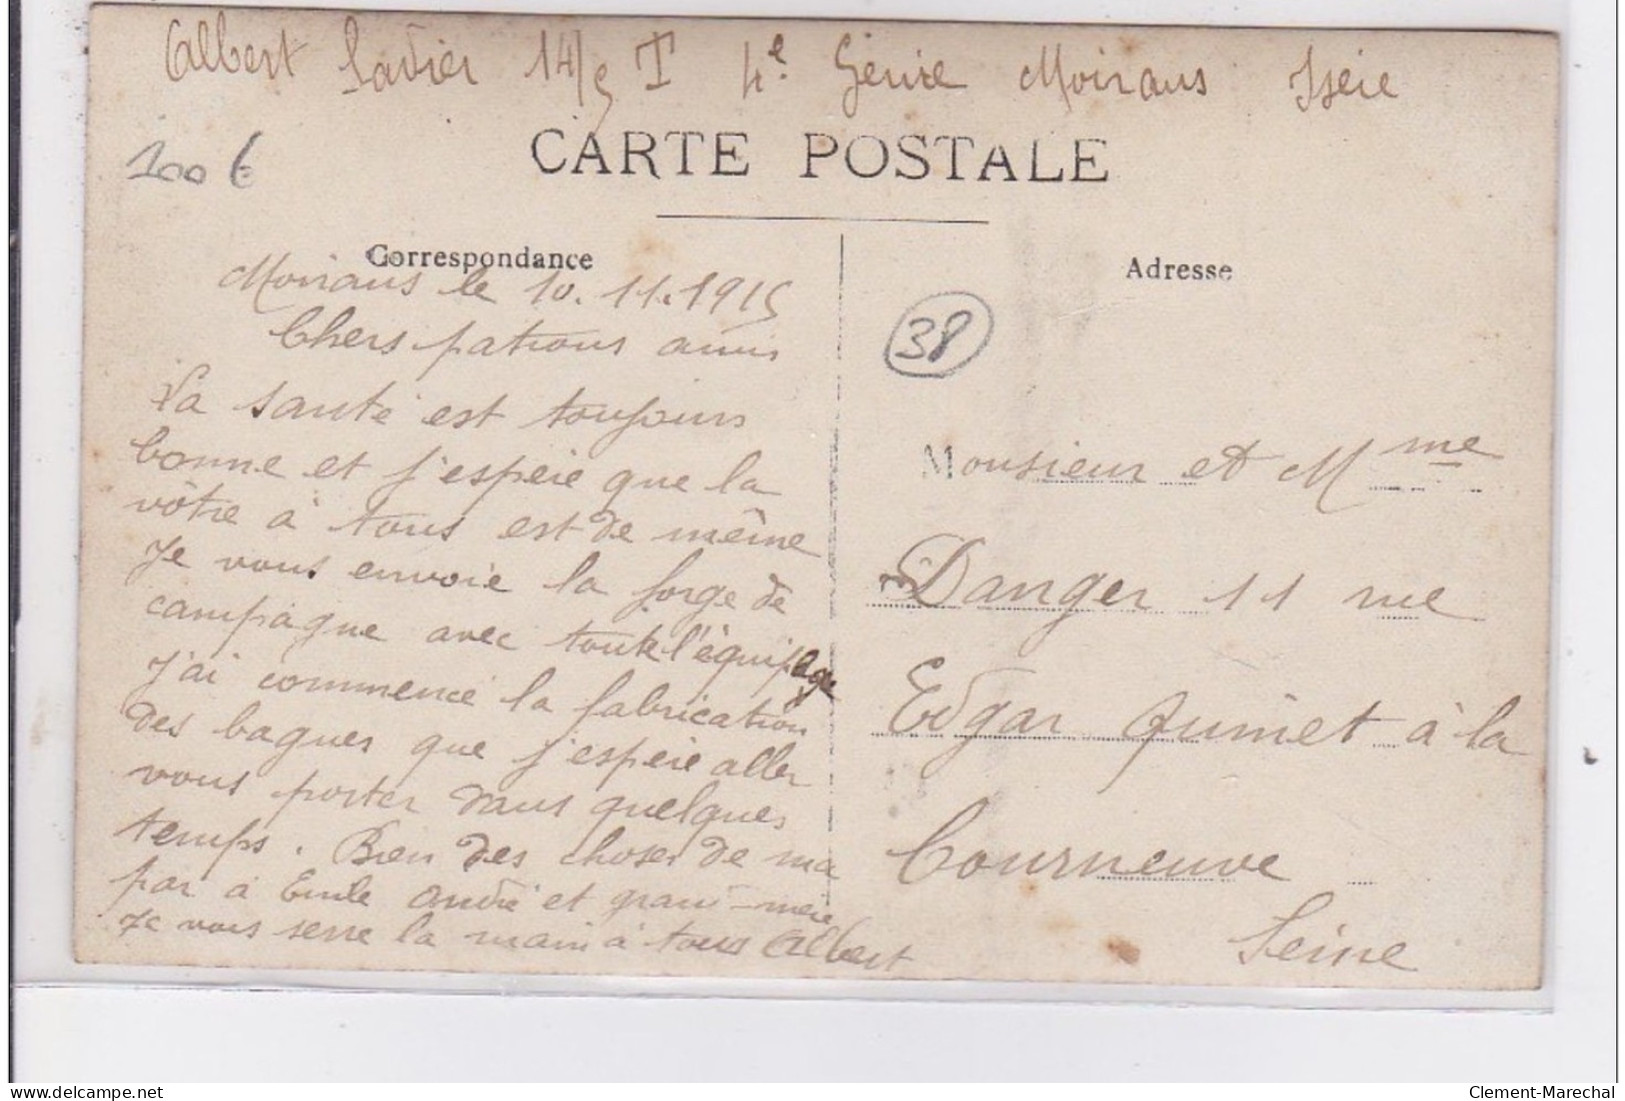 Albert 14/5 T 4e Génie Moirans Isère
100 €
CARTE POSTALE
Correspondance
Moirans le 10.11.1915
Chers patrons amis
La santé est toujours
bonne et j'espère que la
vôtre à tous est de même
Je vous envoie la forge de
campagne avec toute l'équipage
J'ai commencé la fabrication
des bagues que j'espère aller
vous porter dans quelques
temps. Bien des choses de ma
par à Emile André et grand-mère
Je vous serre la main à tous Albert
Adresse
38
Monsieur et Mme
Danger 11 rue
Edgar Quinet à la
Courneuve
Seine
delcampe.net
Clement-Marechal